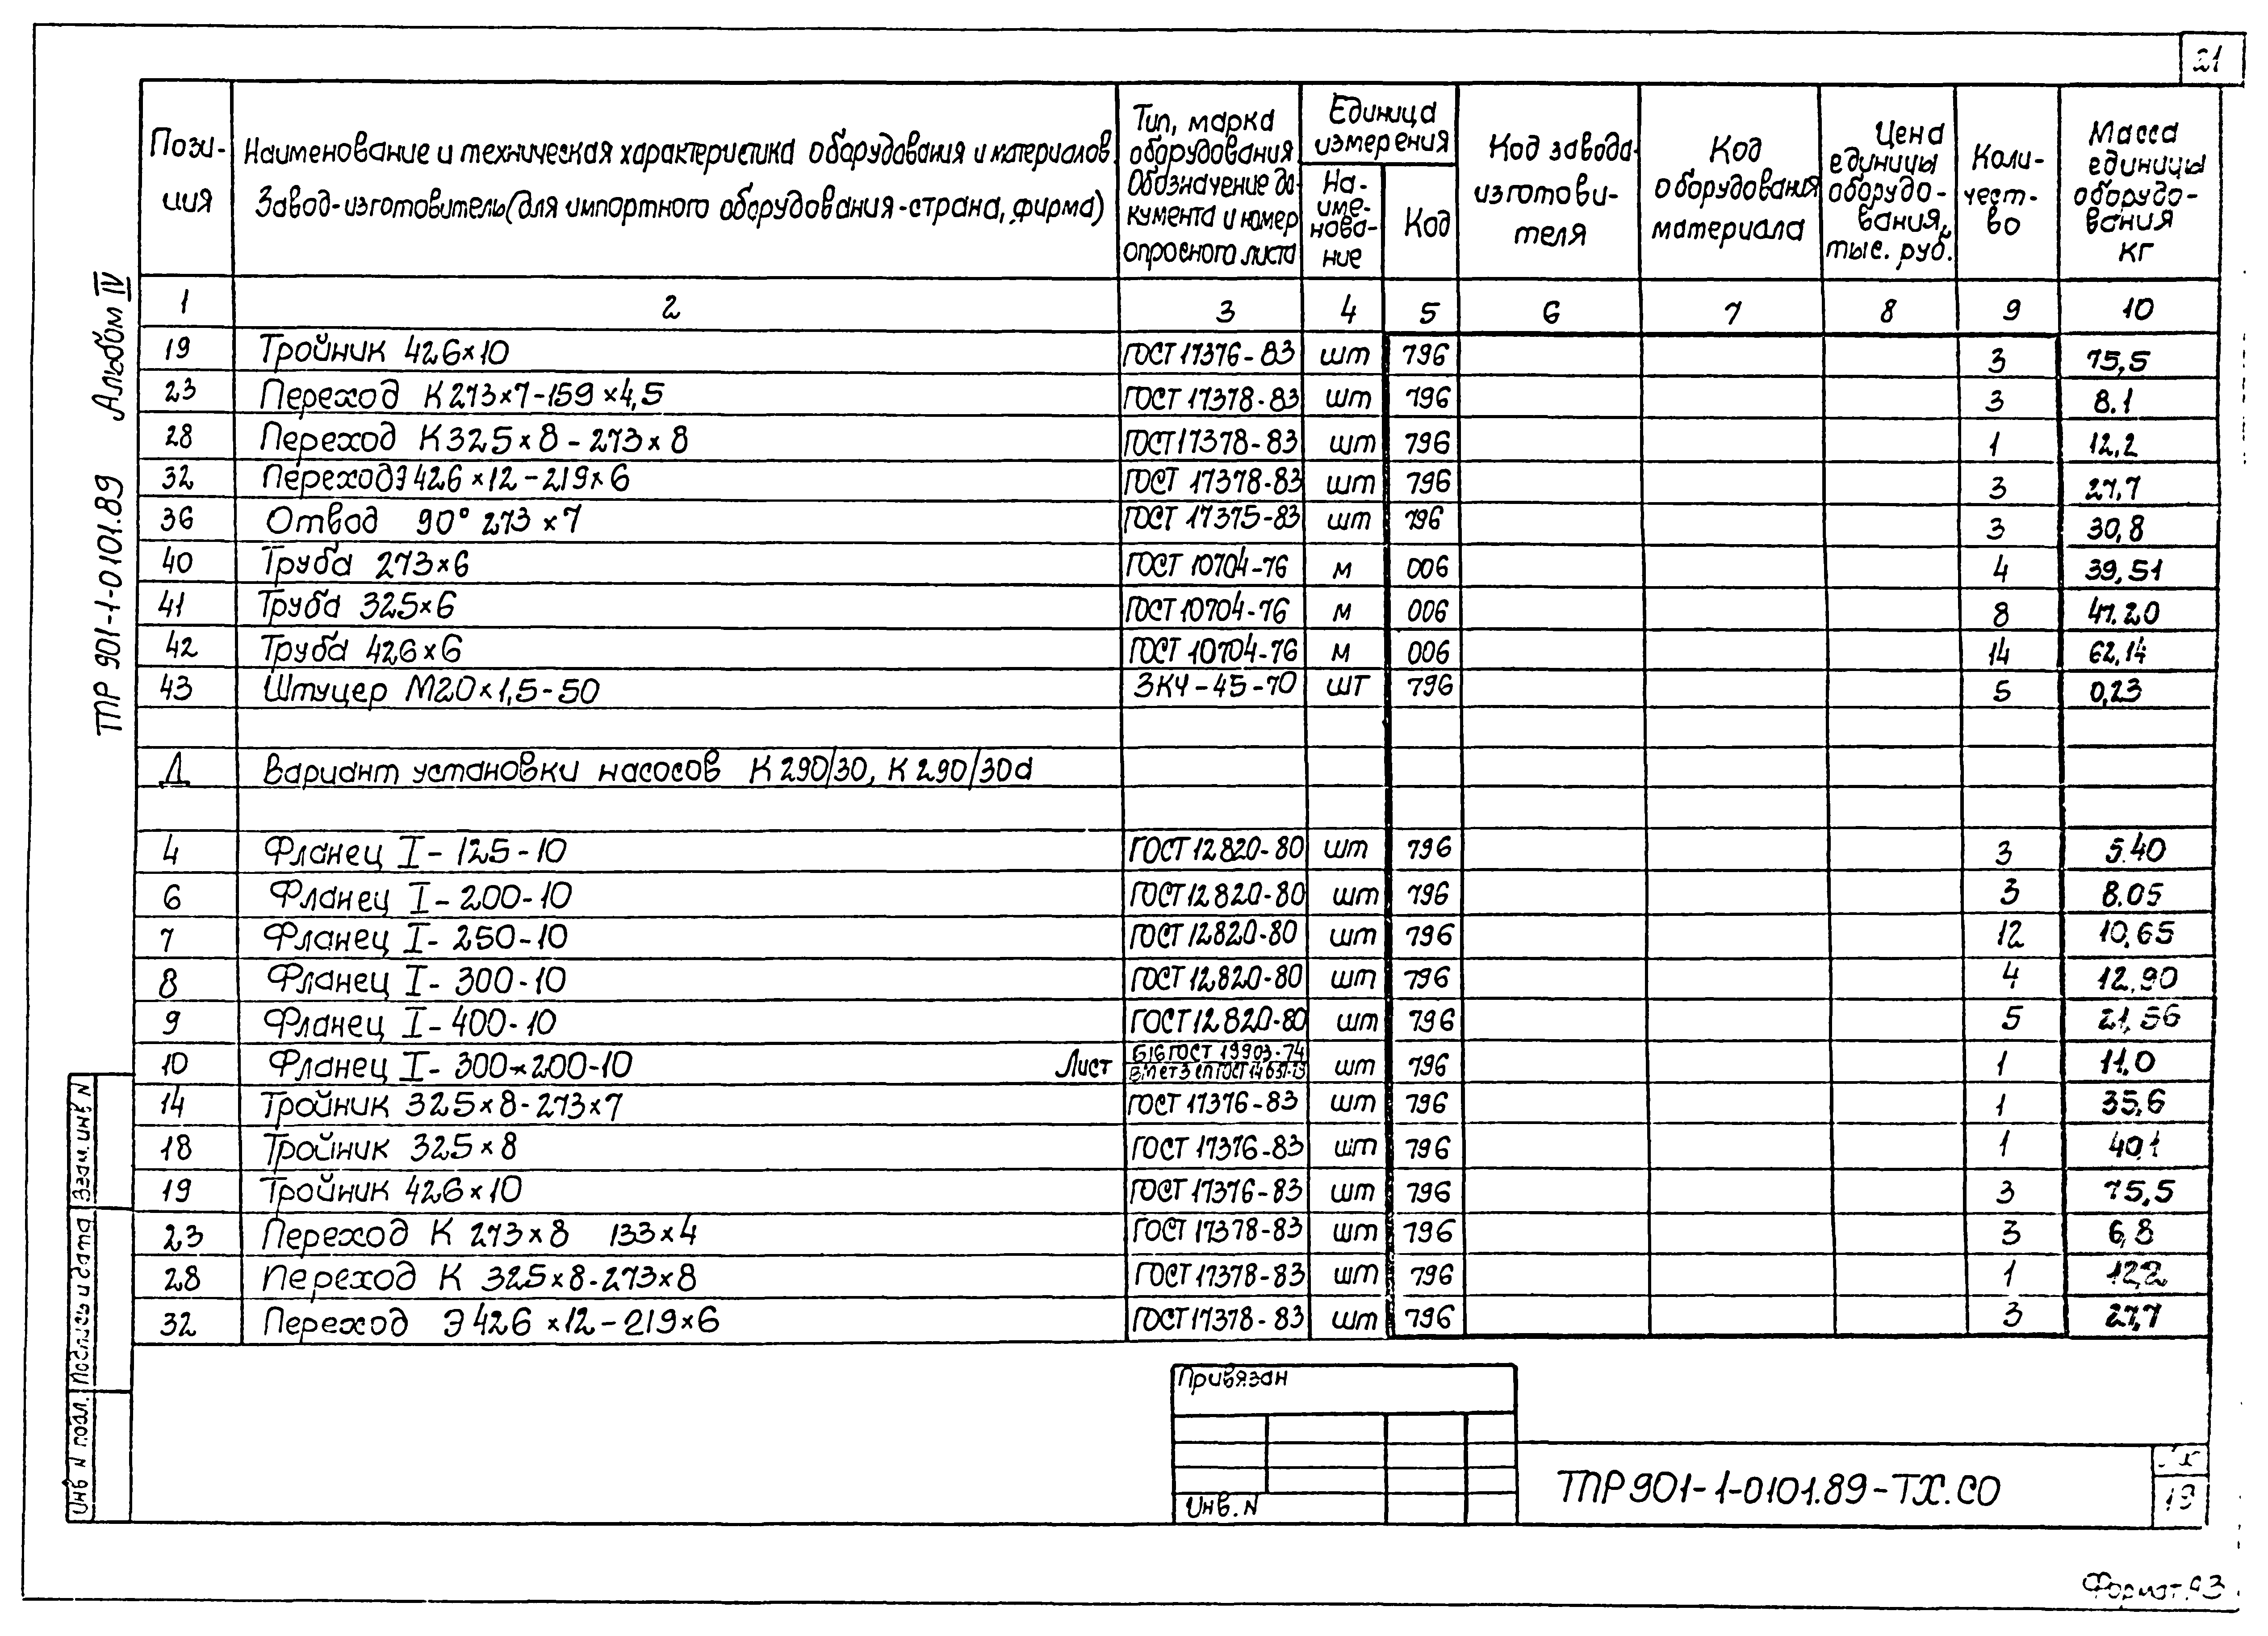 21
Пози-
ция
Наименование и техническая характеристика оборудования и материалов
Завод-изготовитель (для импортного оборудования-страна, фирма)
Тип, марка
оборудования
Обозначение до-
кумента и номер
опросного листа
Единица
измерения
На-
име-
нова-
ние
Код
Код завода-
изготови-
теля
Код
оборудования
материала
Цена
единицы
оборудо-
вания,
тыс. руб.
Коли-
чест-
во
Масса
единицы
оборудо-
вания
кг
1 2 3 4 5 6 7 8 9 10
19 Тройник 426×10 ГОСТ 17376-83 шт 796 3 75,5
23 Переход К 273×7-159×4,5 ГОСТ 17378-83 шт 796 3 8.1
28 Переход К 325×8-273×8 ГОСТ 17378-83 шт 796 1 12,2
32 Переход Э 426×12-219×6 ГОСТ 17378-83 шт 796 3 27,7
36 Отвод 90° 273×7 ГОСТ 17375-83 шт 796 3 30,8
40 Труба 273×6 ГОСТ 10704-76 м 006 4 39,51
41 Труба 325×6 ГОСТ 10704-76 м 006 8 47.20
42 Труба 426×6 ГОСТ 10704-76 м 006 14 62,14
43 Штуцер М20×1,5-50 ЗКЧ-45-70 шт 796 5 0,23
Д Вариант установки насосов К 290/30, К 290/30а
4 Фланец I-125-10 ГОСТ 12820-80 шт 796 3 5.40
6 Фланец I-200-10 ГОСТ 12820-80 шт 796 3 8.05
7 Фланец I-250-10 ГОСТ 12820-80 шт 796 12 10,65
8 Фланец I-300-10 ГОСТ 12820-80 шт 796 4 12,90
9 Фланец I-400-10 ГОСТ 12820-80 шт 796 5 21,56
10 Фланец I-300×200-10 Лист Б16 ГОСТ 19903-74 шт 796 1 11,0
14 Тройник 325×8-273×7 ГОСТ 17376-83 шт 796 1 35,6
18 Тройник 325×8 ГОСТ 17376-83 шт 796 1 40,1
19 Тройник 426×10 ГОСТ 17376-83 шт 796 3 75,5
23 Переход К 273×8 133×4 ГОСТ 17378-83 шт 796 3 6,8
28 Переход К 325×8-273×8 ГОСТ 17378-83 шт 796 1 12,2
32 Переход Э 426×12-219×6 ГОСТ 17378-83 шт 796 3 27,7
ТПР 901-1-0101.89 Альбом IV
Взам. инв N
Подпись и дата
Инв N подл.
Привязан
Инв. N
ТПР 901-1-0101.89-ТХ.СО
19
Формат А3